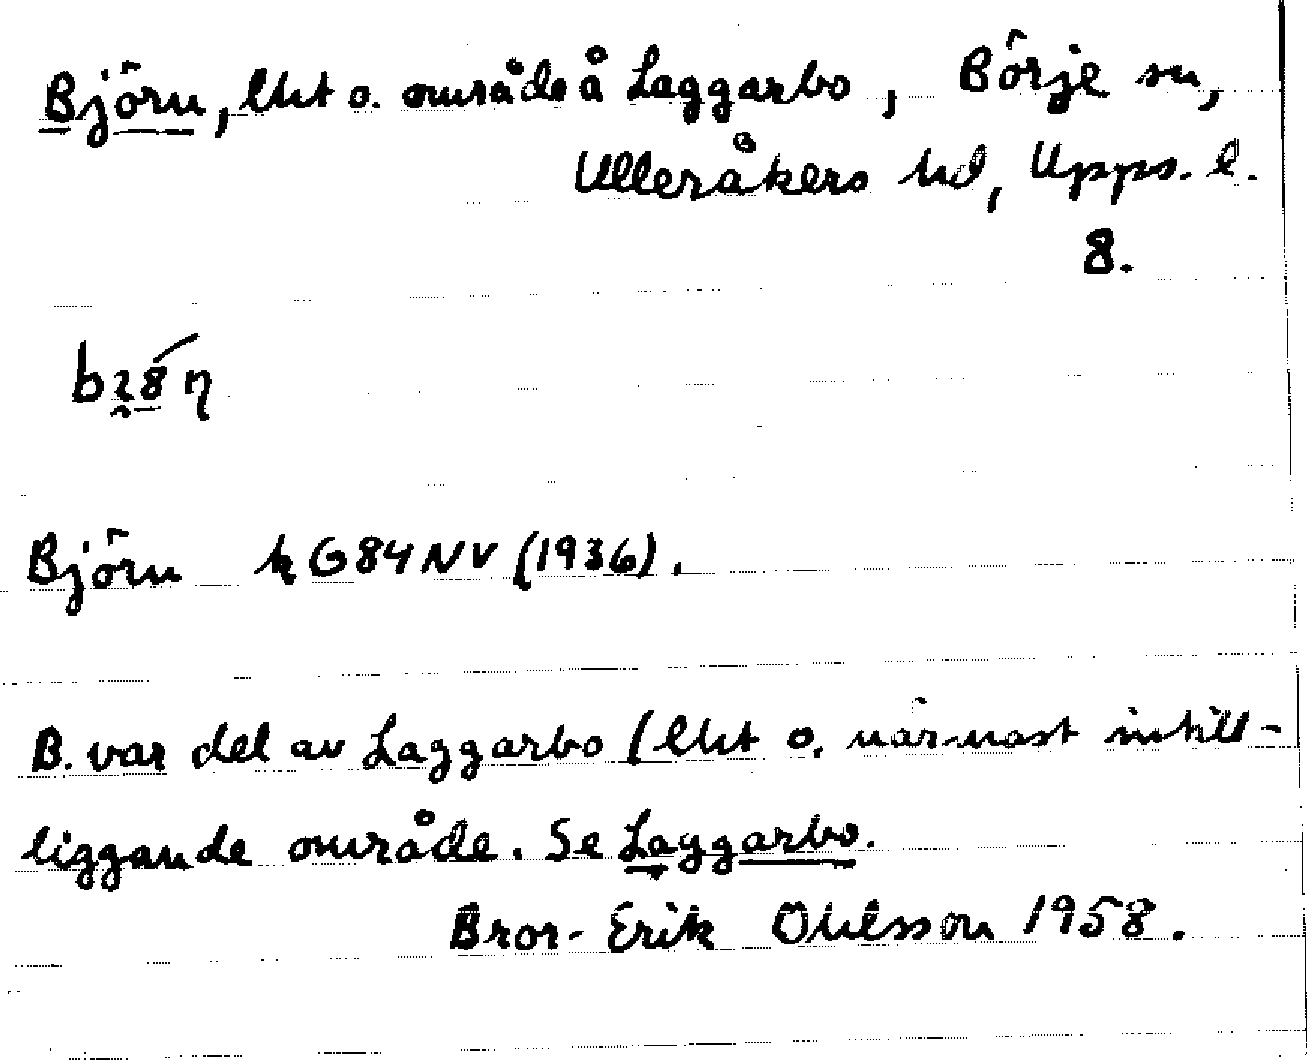 Björn, lht o. område å Laggarbo, Börje sn,
Ulleråkers hd, Upps. l.
8.
Björn k G84NV (1936).
B. var del av Laggarbo (lht o. närmast intill-
liggande område. Se Laggarbo.
Bror-Erik Ohlsson 1958.